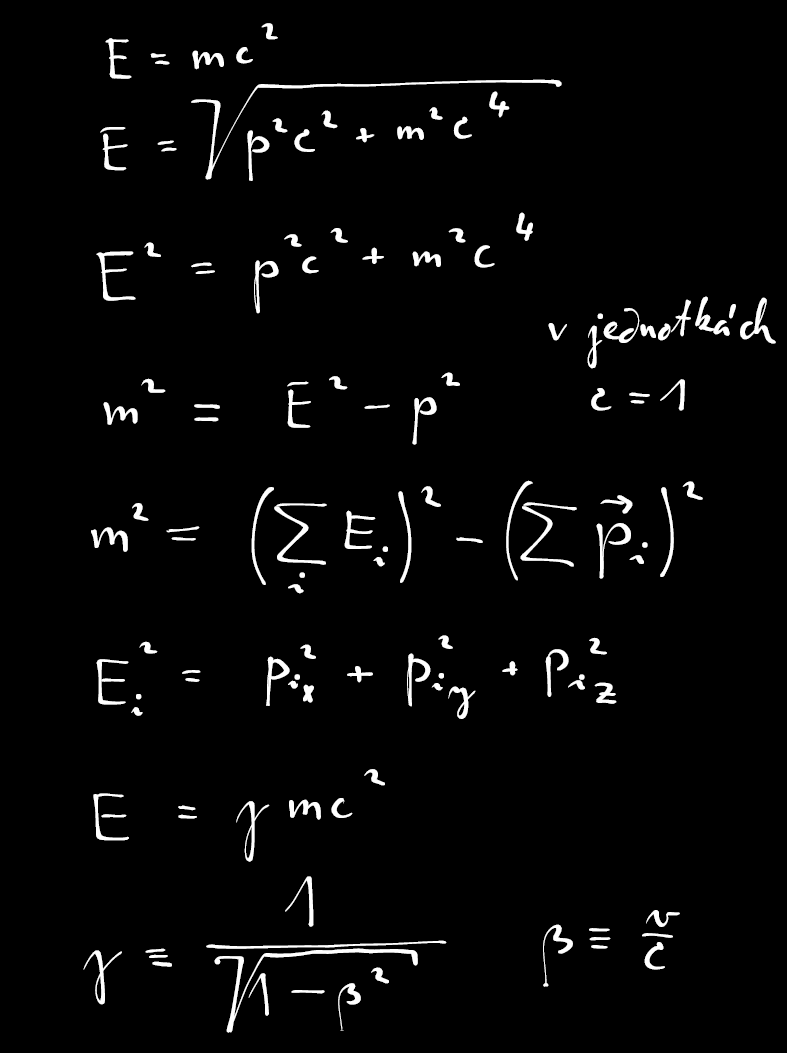 E = mc²
E = √(p²c² + m²c⁴)
E² = p²c² + m²c⁴
v jednotkách
m² = E² - p² c = 1
m² = (∑_i E_i)² - (∑ p⃗_i)²
E_i² = p_ix² + p_iy² + p_iz²
E = γmc²
γ ≡ 1/√(1 - β²) β ≡ v/c